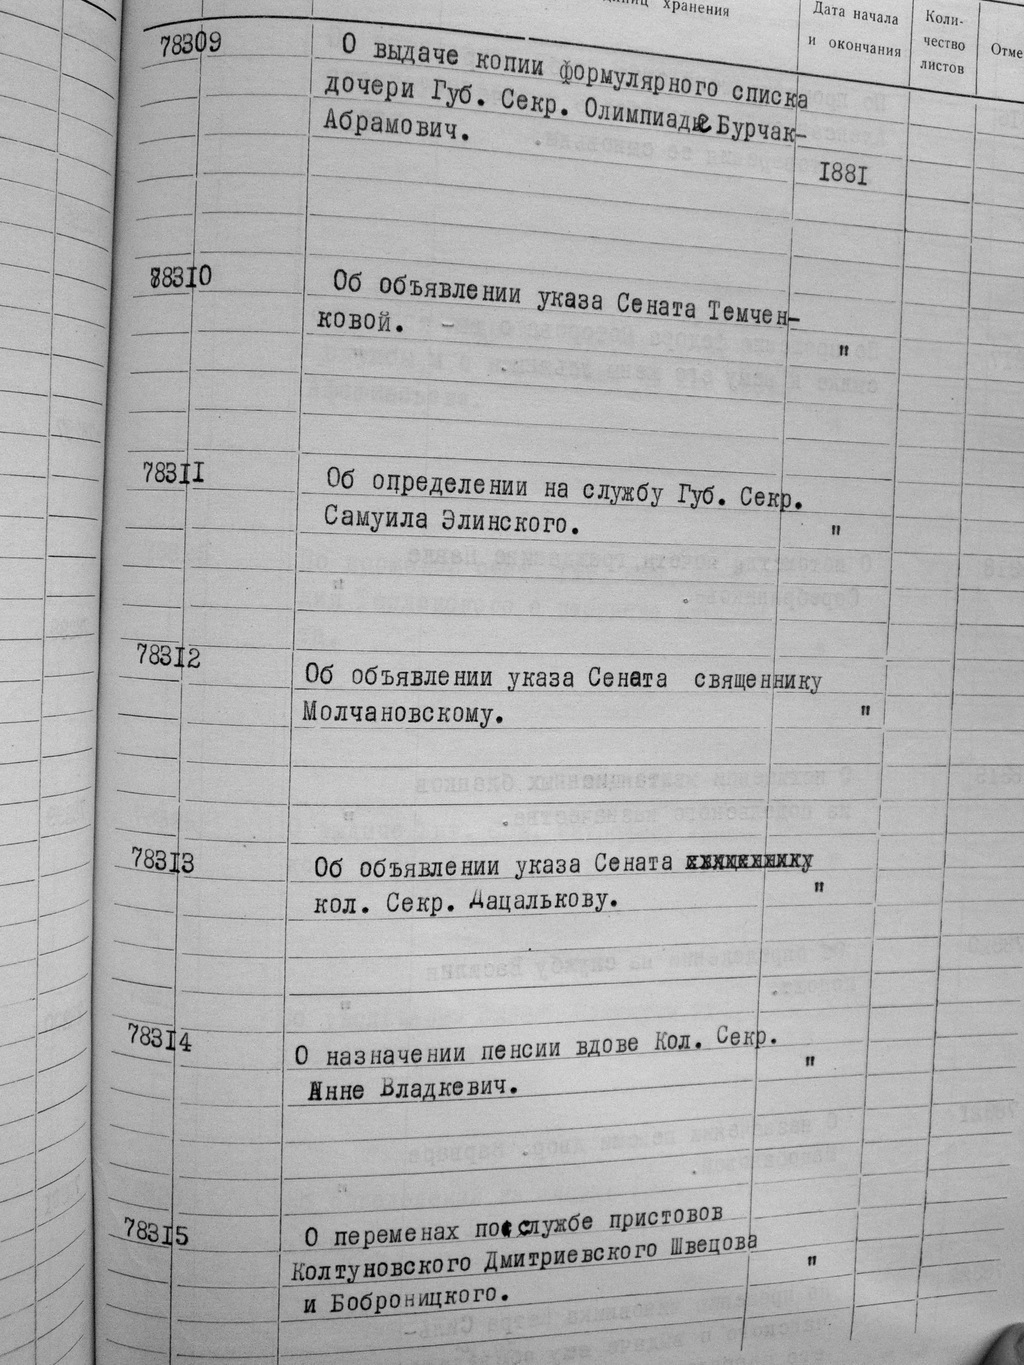 хранения
Дата начала
и окончания
Коли-
чество
листов
Отме
78309
О выдаче копии формулярного списка
дочери Губ. Секр. Олимпиаде Бурчак-
Абрамович.
I88I
783I0
Об объявлении указа Сената Темчен-
ковой. -
"
783II
Об определении на службу Губ. Секр.
Самуила Элинского.
"
783I2
Об объявлении указа Сената священнику
Молчановскому.
"
783I3
Об объявлении указа Сената
кол. Секр. Дацалькову.
"
783I4
О назначении пенсии вдове Кол. Секр.
Анне Владкевич.
"
783I5
О переменах по службе приставов
Колтуновского Дмитриевского Швецова
и Боброницкого.
"